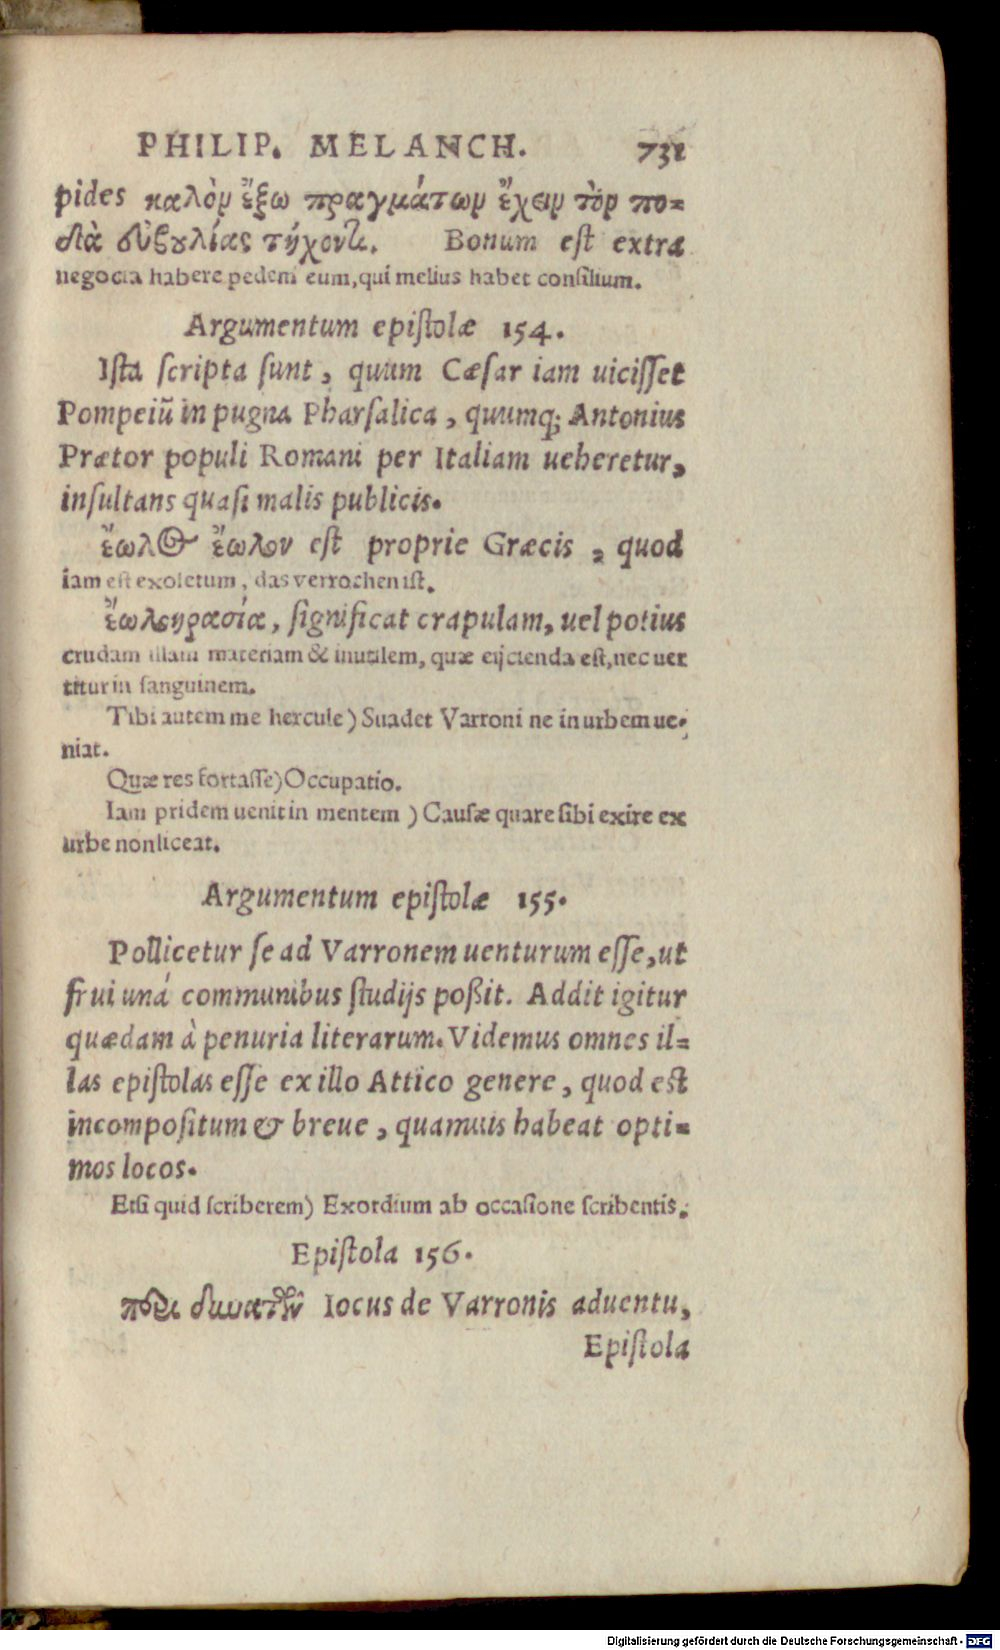 PHILIP. MELANCH. 731
pides καλὸν ἔξω πραγμάτων ἔχειν τὸν πο=
διὰ εὐβουλίας τήχοντι. Bonum est extra
negocia habere pedem eum, qui melius habet consilium.
Argumentum epistolæ 154.
Ista scripta sunt, quum Cæsar iam uicisset
Pompeiũ in pugna Pharsalica, quumq; Antonius
Prætor populi Romani per Italiam ueheretur,
insultans quasi malis publicis.
ἕωλος ἕωλον est proprie Græcis, quod
iam est exoletum, das verrochen ist.
ἑωλοκρασία, significat crapulam, uel potius
crudam illam materiam & inutilem, quæ eijcienda est, nec uer
titur in sanguinem.
Tibi autem me hercule) Suadet Varroni ne in urbem ue-
niat.
Quæ res fortasse) Occupatio.
Iam pridem uenit in mentem) Causæ quare sibi exire ex
urbe non liceat.
Argumentum epistolæ 155.
Pollicetur se ad Varronem uenturum esse, ut
frui unâ communibus studijs poßit. Addit igitur
quædam à penuria literarum. Videmus omnes il=
las epistolas esse ex illo Attico genere, quod est
incompositum & breue, quamuis habeat opti=
mos locos.
Etsi quid scriberem) Exordium ab occasione scribentis.
Epistola 156.
περὶ δυνατῶν Iocus de Varronis aduentu,
Epistola
Digitalisierung gefördert durch die Deutsche Forschungsgemeinschaft - DFG